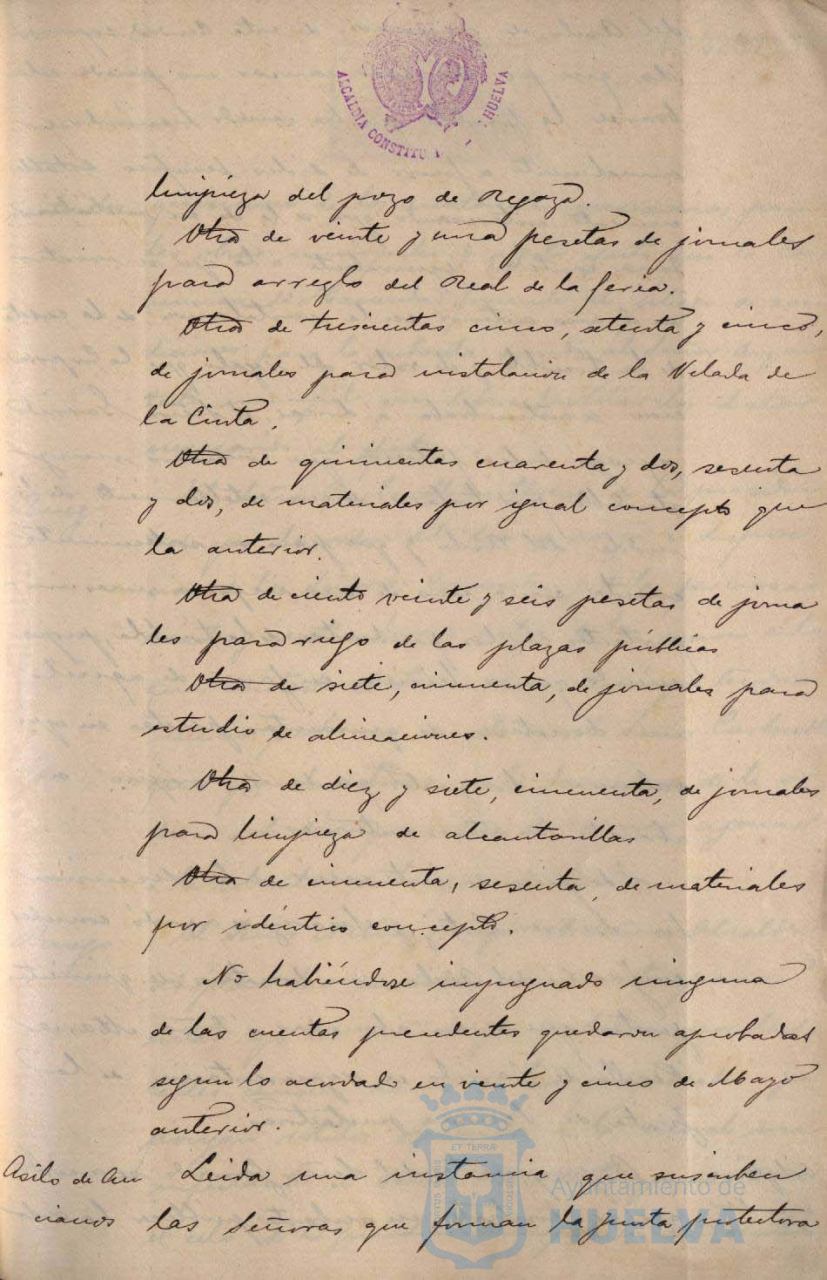 ALCALDIA CONSTITU HUELVA
limpieza del pozo de
Otra de veinte y una pesetas de jornales
para arreglo del Real de la feria.
Otra de trescientas cinco, setenta y cinco,
de jornales para instalacion de la Velada de
la Cinta.
Otra de quinientas cuarenta y dos, sesenta
y dos, de materiales por igual concepto que
la anterior.
Otra de ciento veinte y seis pesetas de jorna
les para riego de las plazas públicas
Otra de siete, cincuenta, de jornales para
estudio de alineaciones.
Otra de diez y siete, cincuenta, de jornales
para limpieza de alcantarillas
Otra de cincuenta, sesenta, de materiales
por idéntico concepto.
No habiéndose impugnado ninguna
de las cuentas precedentes quedaron aprobadas
segun lo acordado en veinte y cinco de Mayo
anterior.
Asilo de An
cianos
Leida una instancia que suscriben
las Señoras que forman la Junta protectora
Ayuntamiento de
HUELVA